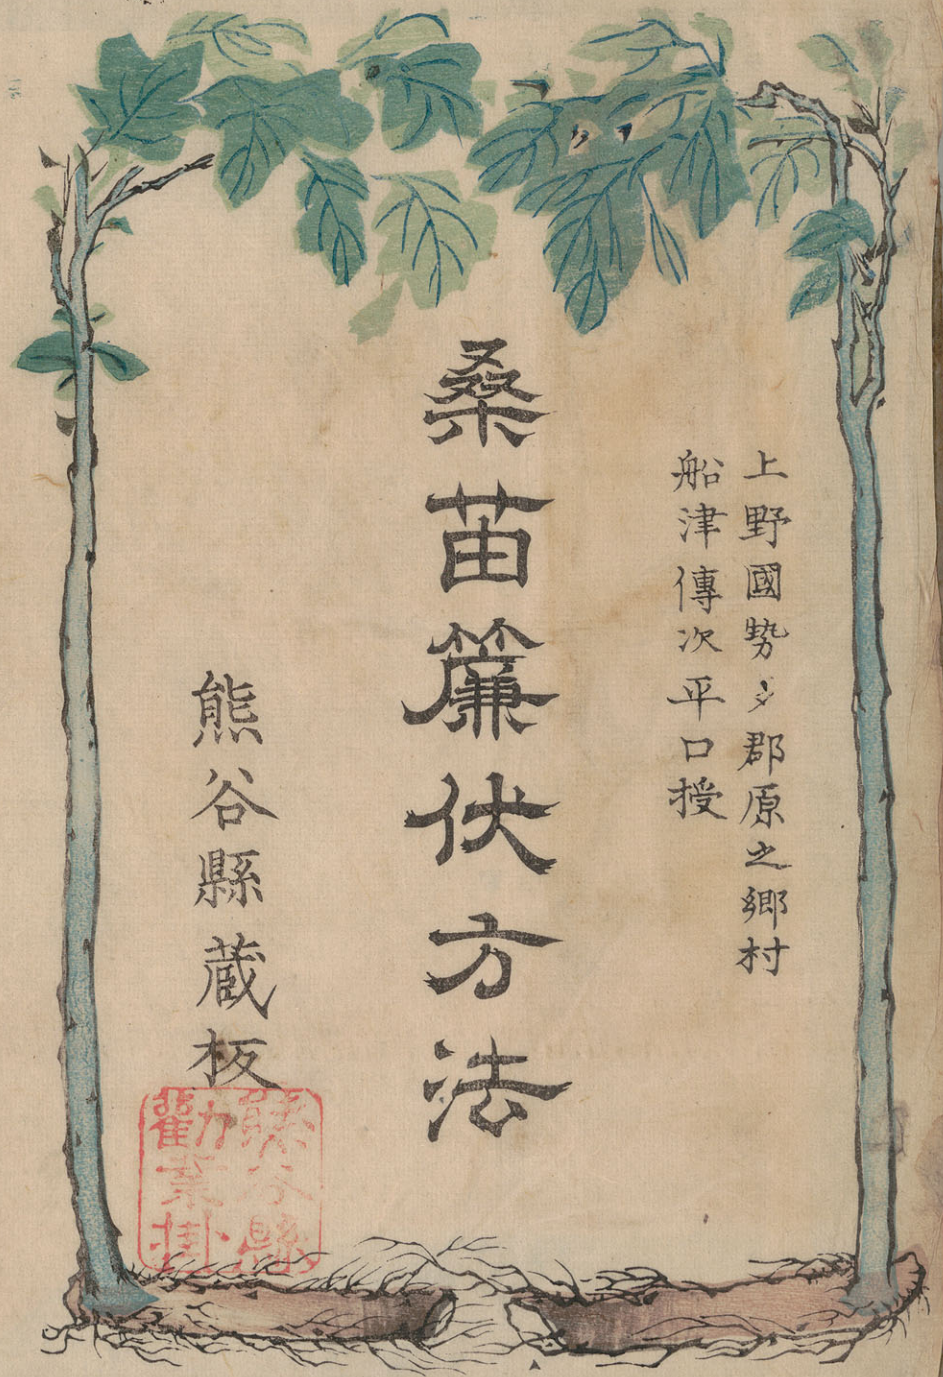 上野國勢〻郡原之郷村
船津傳次平口授
桑苗簾伏方法
熊谷縣蔵板
熊谷縣
勸業掛